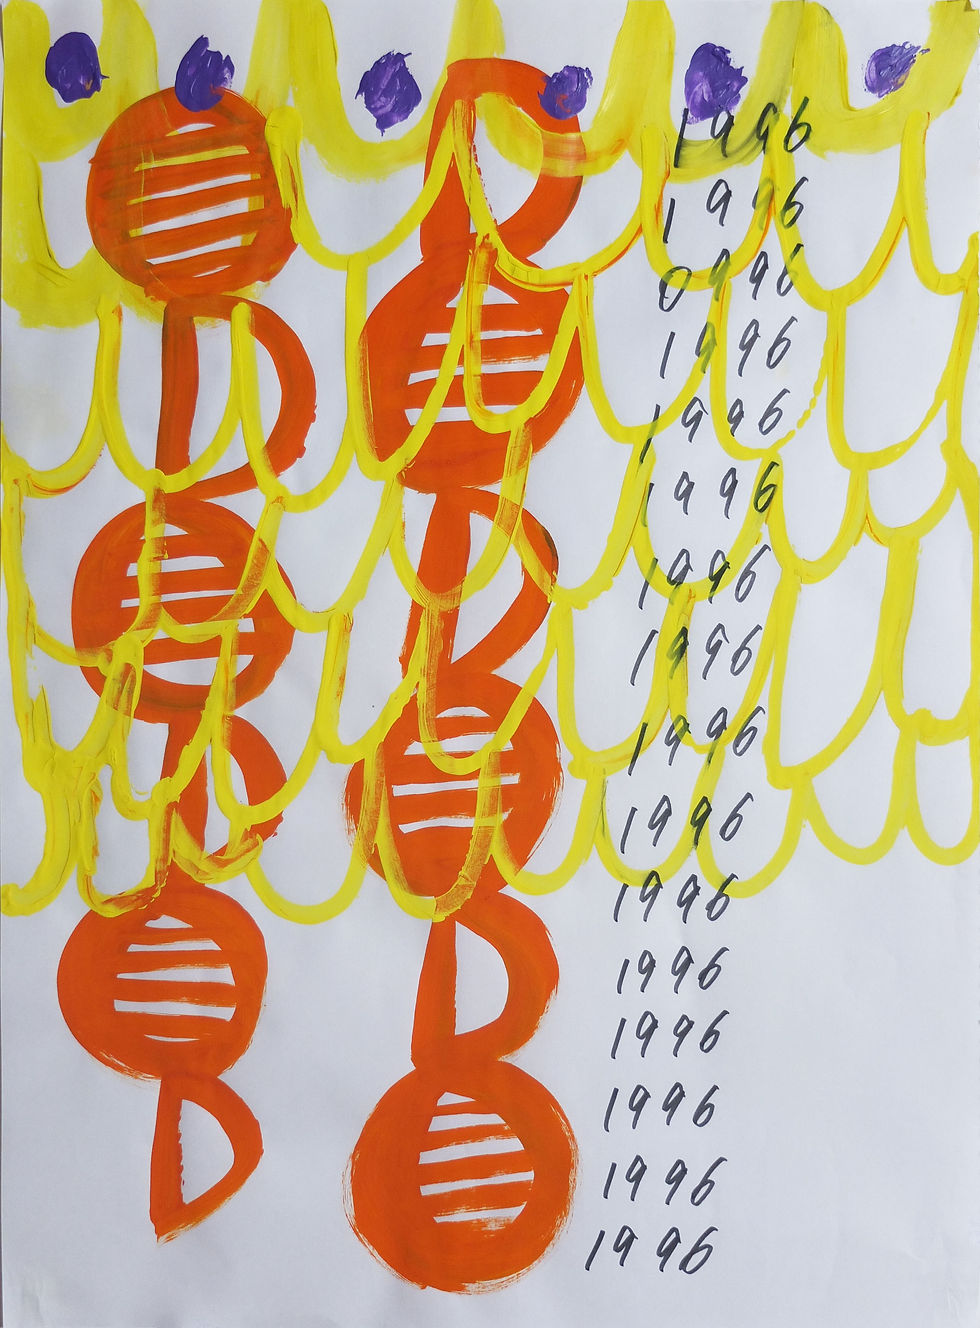 1996
1996
0996
1996
1996
1996
1996
1996
1996
1996
1996
1996
1996
1996
1996
1996